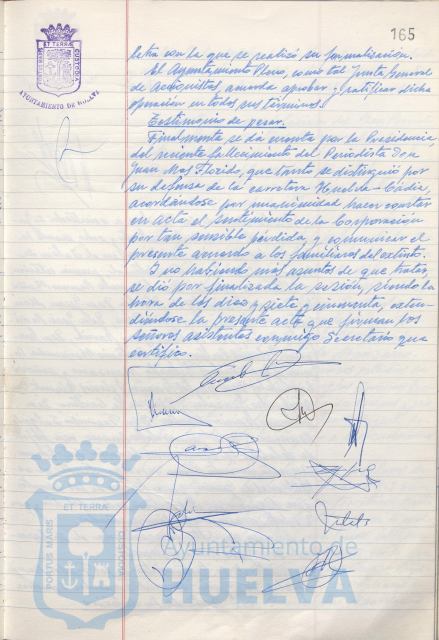 165
ET TERRÆ
CUSTODIA
AYUNTAMIENTO DE HUELVA
letra con la que se realizó su formalización.
El Ayuntamiento Pleno, como tal Junta General
de Accionistas, acuerda aprobar y ratificar dicha
operación en todos sus términos.
Testimonio de pesar.
Finalmente se dá cuenta por la Presidencia
del reciente fallecimiento del Periodista Don
Juan Mas Florido, que tanto se distinguió por
su defensa de la carretera Huelva-Cádiz,
acordándose por unanimidad hacer constar
en acta el sentimiento de la Corporación
por tan sensible pérdida, y comunicar el
presente acuerdo a los familiares del extinto.
Y no habiendo más asuntos de que tratar,
se dió por finalizada la sesión, siendo la
hora de las diez y siete y cincuenta, exten-
diéndose la presente acta, que firman los
señores asistentes conmigo Secretario que
certifico.
ET TERRÆ
PORTUS MARIS
CUSTODIA
Ayuntamiento de
HUELVA